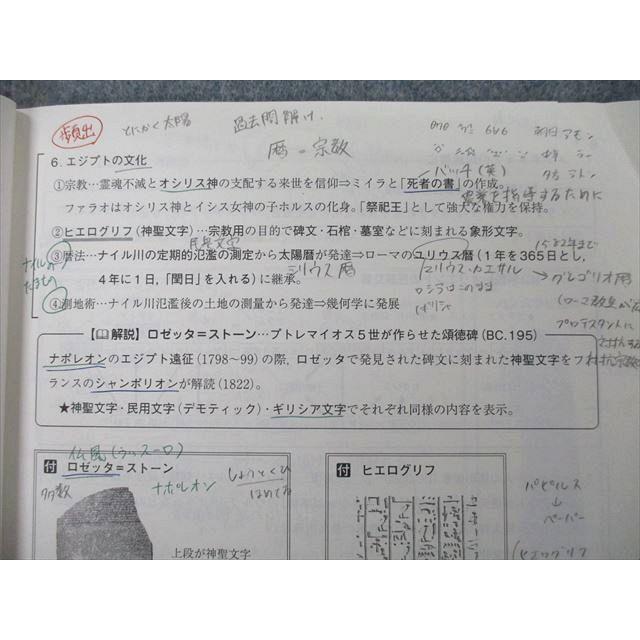 頻出
とにかく太陽
過去問解け、
暦=宗教
朝日アモン
ラー
6. エジプトの文化
①宗教…霊魂不滅とオシリス神の支配する来世を信仰⇒ミイラと「死者の書」の作成。
ファラオはオシリス神とイシス女神の子ホルスの化身。「祭祀王」として強大な権力を保持。
②ヒエログリフ(神聖文字)…宗教用の目的で碑文・石棺・墓室などに刻まれる象形文字。
民衆文字
1582年まで
③暦法…ナイル川の定期的氾濫の測定から太陽暦が発達⇒ローマのユリウス暦(1年を365日とし、
4年に1日,「閏日」を入れる)に継承。
シリウス暦
ユリウス・カエサル
→グレゴリオ暦
ロシアはこのまま
④測地術…ナイル川氾濫後の土地の測量から発達⇒幾何学に発展
プロテスタントに
【解説】ロゼッタ=ストーン…プトレマイオス5世が作らせた頌徳碑(BC.195)
ナポレオンのエジプト遠征(1798〜99)の際, ロゼッタで発見された碑文に刻まれた神聖文字をフ
ランスのシャンポリオンが解読(1822)。
★神聖文字・民用文字(デモティック)・ギリシア文字でそれぞれ同様の内容を表示。
付 ロゼッタ=ストーン
ナポレオン
しょうとくひ
ほめてる
上段が神聖文字
付 ヒエログリフ
パピルス
↓
ペーパー
(ヒエログリフ